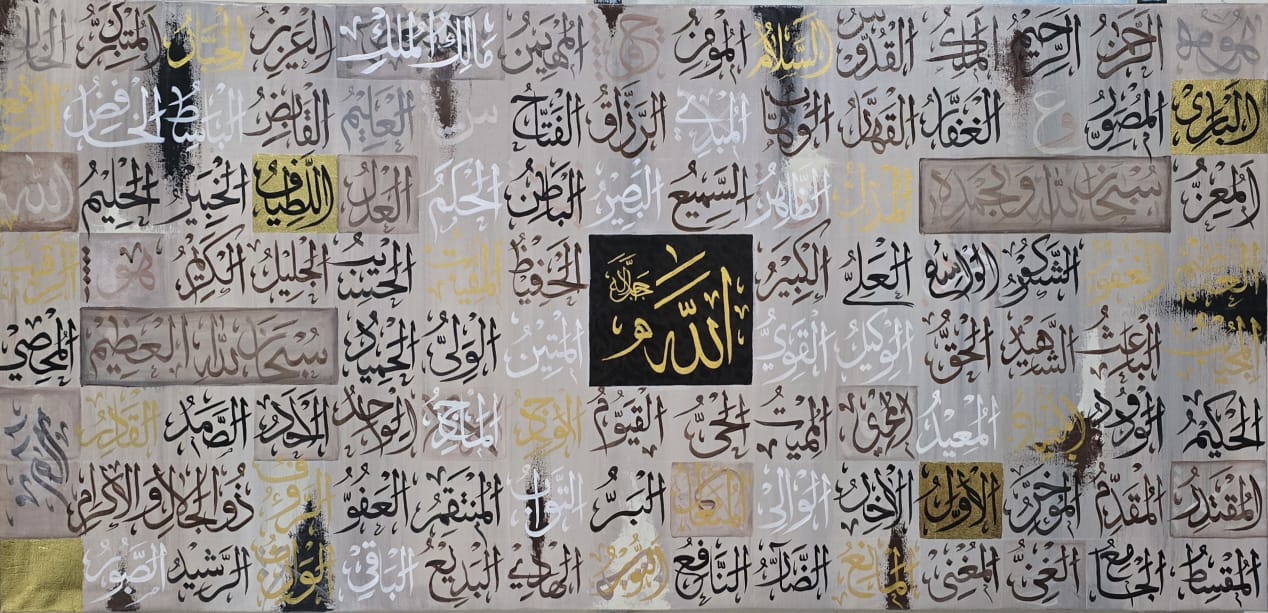 هو الرحمن الرحيم الملك القدوس السلام المؤمن المهيمن مالك الملك العزيز الجبار المتكبر الخالق
البارئ المصور الغفار القهار الوهاب المبدئ الرزاق الفتاح العليم القابض الباسط الخافض الرافع
المعز سبحان الله وبحمده المذل الظاهر السميع البصير الباطن الحكم العدل اللطيف الخبير الحليم الله
العظيم الغفور الشكور الواسع العلي الكبير الله جل جلاله الحفيظ المقيت الحسيب الجليل الكريم هو الرقيب
المجيب الباعث الشهيد الحق الوكيل القوي المتين الولي الحميد سبحان الله العظيم المحصي
الحكيم الودود المعيد المحيي المميت الحي القيوم الواجد الماجد الواحد الاحد الصمد القادر
المقتدر المقدم المؤخر الأول الآخر الوالي المتعال البر التواب المنتقم العفو الرءوف ذو الجلال والإكرام
المقسط الجامع الغني المغني المانع الضار النافع النور الهادي البديع الباقي الوارث الرشيد الصبور